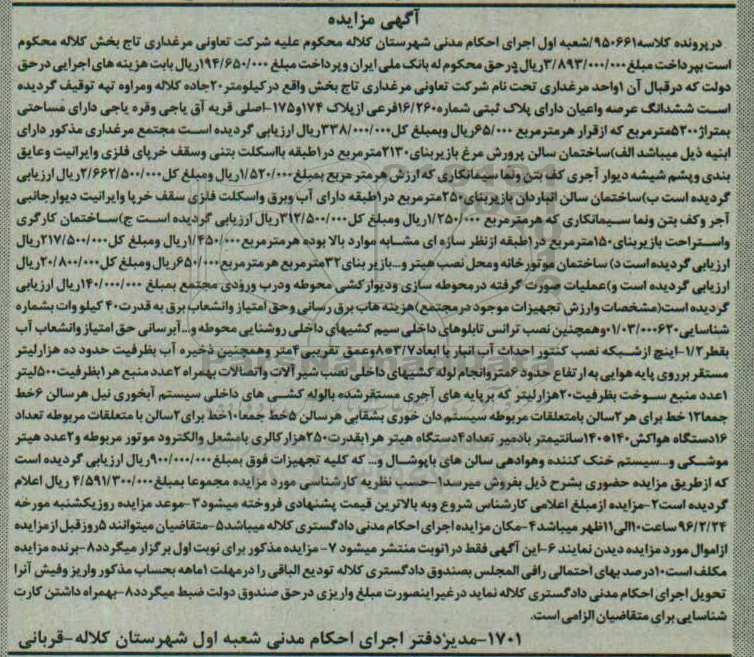 آگهی مزایده
در پرونده کلاسه ۹۵۰۶۶۱/شعبه اول اجرای احکام مدنی شهرستان کلاله محکوم علیه شرکت تعاونی مرغداری تاج بخش کلاله محکوم
است بپرداخت مبلغ ۳/۸۹۳/۰۰۰/۰۰۰ریال درحق محکوم له بانک ملی ایران و پرداخت مبلغ ۱۹۴/۶۵۰/۰۰۰ریال بابت هزینه های اجرایی درحق
دولت که درقبال آن ۱واحد مرغداری تحت نام شرکت تعاونی مرغداری تاج بخش واقع درکیلومتر۲۰جاده کلاله ومراوه تپه توقیف گردیده
است ششدانگ عرصه واعیان دارای پلاک ثبتی شماره ۱۶/۲۶۰فرعی ازپلاک ۱۷۴و۱۷۵-اصلی قریه آق یاجی وقره یاجی دارای مساحتی
بمتراژ۵۲۰۰مترمربع که ازقرار هرمترمربع ۶۵/۰۰۰ریال وبمبلغ کل۳۳۸/۰۰۰/۰۰۰ریال ارزیابی گردیده است مجتمع مرغداری مذکور دارای
ابنیه ذیل میباشد الف)ساختمان سالن پرورش مرغ بازیربنای۲۱۳۰مترمربع در۱طبقه بااسکلت بتنی وسقف خرپای فلزی وایرانیت وعایق
بندی وپشم شیشه دیوار آجری کف بتن ونما سیمانکاری که ارزش هرمتر مربع بمبلغ۱/۵۲۰/۰۰۰ریال ومبلغ کل۲/۶۶۲/۵۰۰/۰۰۰ریال ارزیابی
گردیده است ب)ساختمان سالن انباردان بازیربنای۲۵۰مترمربع در۱طبقه دارای آب وبرق واسکلت فلزی سقف خرپا وایرانیت دیوارجانبی
آجر وکف بتن ونما سیمانکاری که هرمترمربع ۱/۲۵۰/۰۰۰ریال ومبلغ کل۳۱۲/۵۰۰/۰۰۰ریال ارزیابی گردیده است ج)ساختمان کارگری
واستراحت بازیربنای۱۵۰مترمربع در۱طبقه ازنظر سازه ای مشابه موارد بالا بوده هرمترمربع۱/۴۵۰/۰۰۰ریال ومبلغ کل۲۱۷/۵۰۰/۰۰۰ریال
ارزیابی گردیده است د) ساختمان موتورخانه ومحل نصب هیتر و...بازیر بنای۳۲مترمربع هرمترمربع۶۵۰/۰۰۰ریال ومبلغ کل۲۰/۸۰۰/۰۰۰ریال
ارزیابی گردیده است و)عملیات صورت گرفته درمحوطه سازی ودیوارکشی محوطه ودرب ورودی مجتمع بمبلغ ۱۴۰/۰۰۰/۰۰۰ریال ارزیابی
گردیده است(مشخصات وارزش تجهیزات موجود درمجتمع)هزینه هاب برق رسانی وحق امتیاز وانشعاب برق به قدرت۴۰ کیلو وات بشماره
شناسایی۰۱/۰۳/۰۰۰۶۲۰وهمچنین نصب ترانس تابلوهای داخلی سیم کشیهای داخلی روشنایی محوطه و...آبرسانی حق امتیاز وانشعاب آب
بقطر۱/۲-اینچ ازشبکه نصب کنتور احداث آب انبار با ابعاد۳/۷*۸وعمق تقریبی۴متر وهمچنین ذخیره آب بظرفیت حدود ده هزارلیتر
مستقر برروی پایه هوایی به ارتفاع حدود ۶متروانجام لوله کشیهای داخلی نصب شیرآلات واتصالات بهمراه ۲عدد منبع هر۱بظرفیت۵۰۰لیتر
۱عدد منبع سوخت بظرفیت۲۰هزارلیتر که برپایه های آجری مستقرشده بالوله کشی های داخلی سیستم آبخوری نیل هرسالن ۶خط
جمعا۱۲ خط برای هر۲سالن بامتعلقات مربوطه سیستم دان خوری بشقابی هرسالن ۵خط جمعا۱۰خط برای۲سالن با متعلقات مربوطه تعداد
۱۶دستگاه هواکش۱۴۰*۱۴۰سانتیمتر بادمپر تعداد۴دستگاه هیتر هر۱بقدرت۲۵۰هزارکالری بامشعل والکترود موتور مربوطه و۲عدد هیتر
موشکی و...سیستم خنک کننده وهوادهی سالن های باپوشال و... که کلیه تجهیزات فوق بمبلغ۹۰۰/۰۰۰/۰۰۰ریال ارزیابی گردیده است
که ازطریق مزایده حضوری بشرح ذیل بفروش میرسد۱-حسب نظریه کارشناسی مورد مزایده مجموعا بمبلغ۴/۵۹۱/۳۰۰/۰۰۰ ریال اعلام
گردیده است۲-مزایده ازمبلغ اعلامی کارشناس شروع وبه بالاترین قیمت پیشنهادی فروخته میشود۳-موعد مزایده روزیکشنبه مورخه
۹۶/۲/۲۴ ساعت۱۰الی۱۱ظهر میباشد۴-مکان مزایده اجرای احکام مدنی دادگستری کلاله میباشد۵-متقاضیان میتوانند ۵روزقبل ازمزایده
ازاموال مورد مزایده دیدن نمایند ۶-این آگهی فقط در۱نوبت منتشر میشود ۷- مزایده مذکور برای نوبت اول برگزار میگردد۸-برنده مزایده
مکلف است۱۰درصد بهای احتمالی رافی المجلس بصندوق دادگستری کلاله تودیع الباقی را درمهلت ۱ماهه بحساب مذکور واریز وفیش آنرا
تحویل اجرای احکام مدنی دادگستری کلاله نماید درغیراینصورت مبلغ واریزی درحق صندوق دولت ضبط میگردد۸-بهمراه داشتن کارت
شناسایی برای متقاضیان الزامی است.
۱۷۰۱-مدیردفتر اجرای احکام مدنی شعبه اول شهرستان کلاله-قربانی